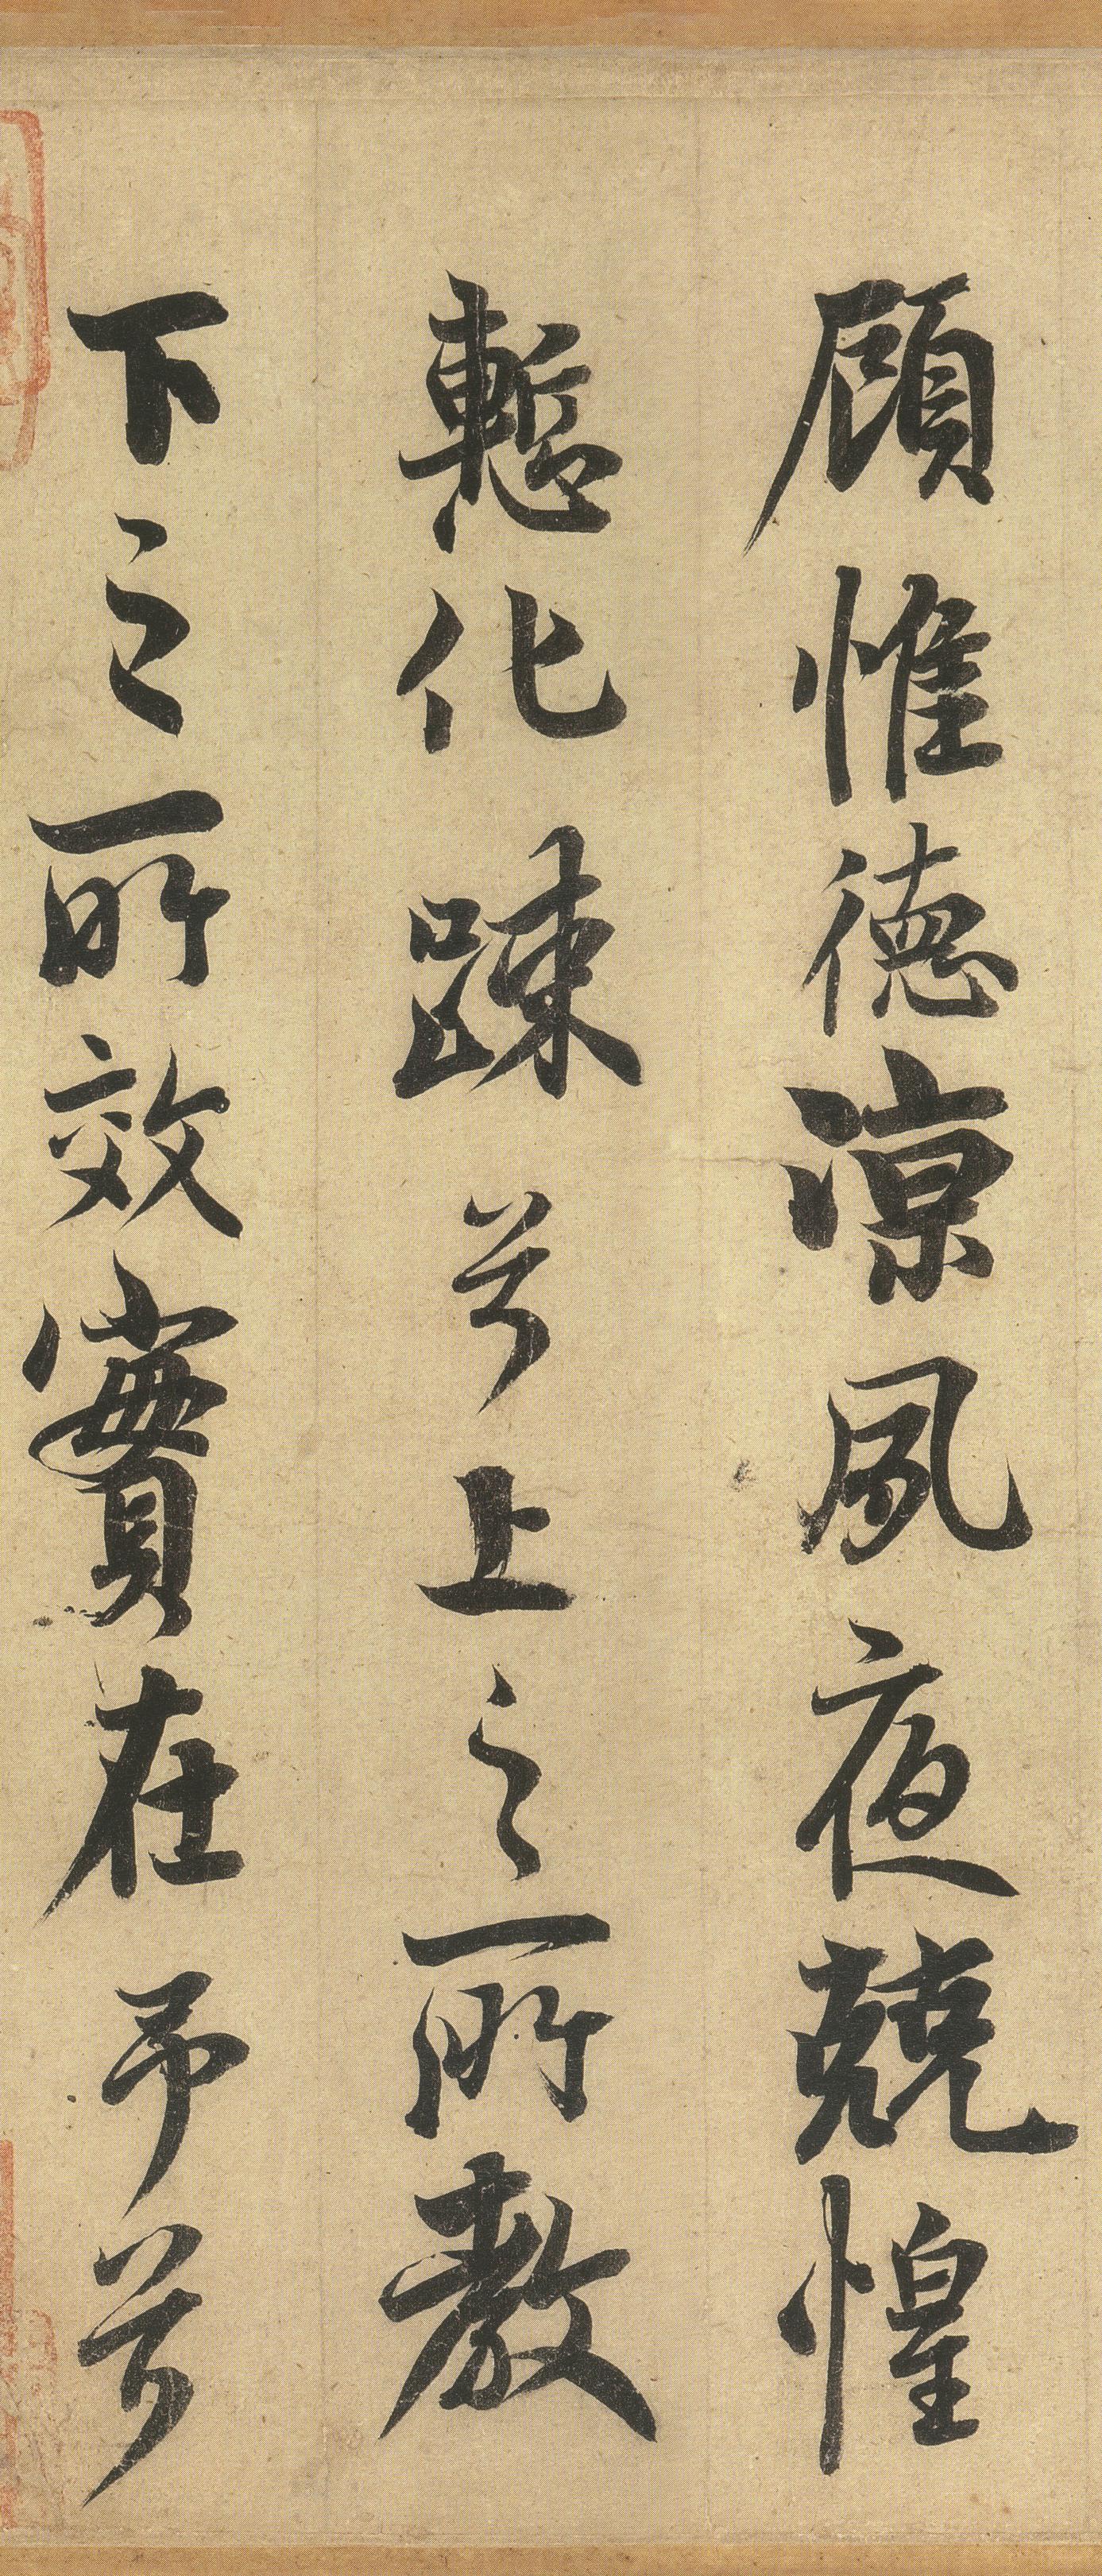 顧惟德凉夙夜兢惶
慙化踈兮上之所教
下之所效實在予兮